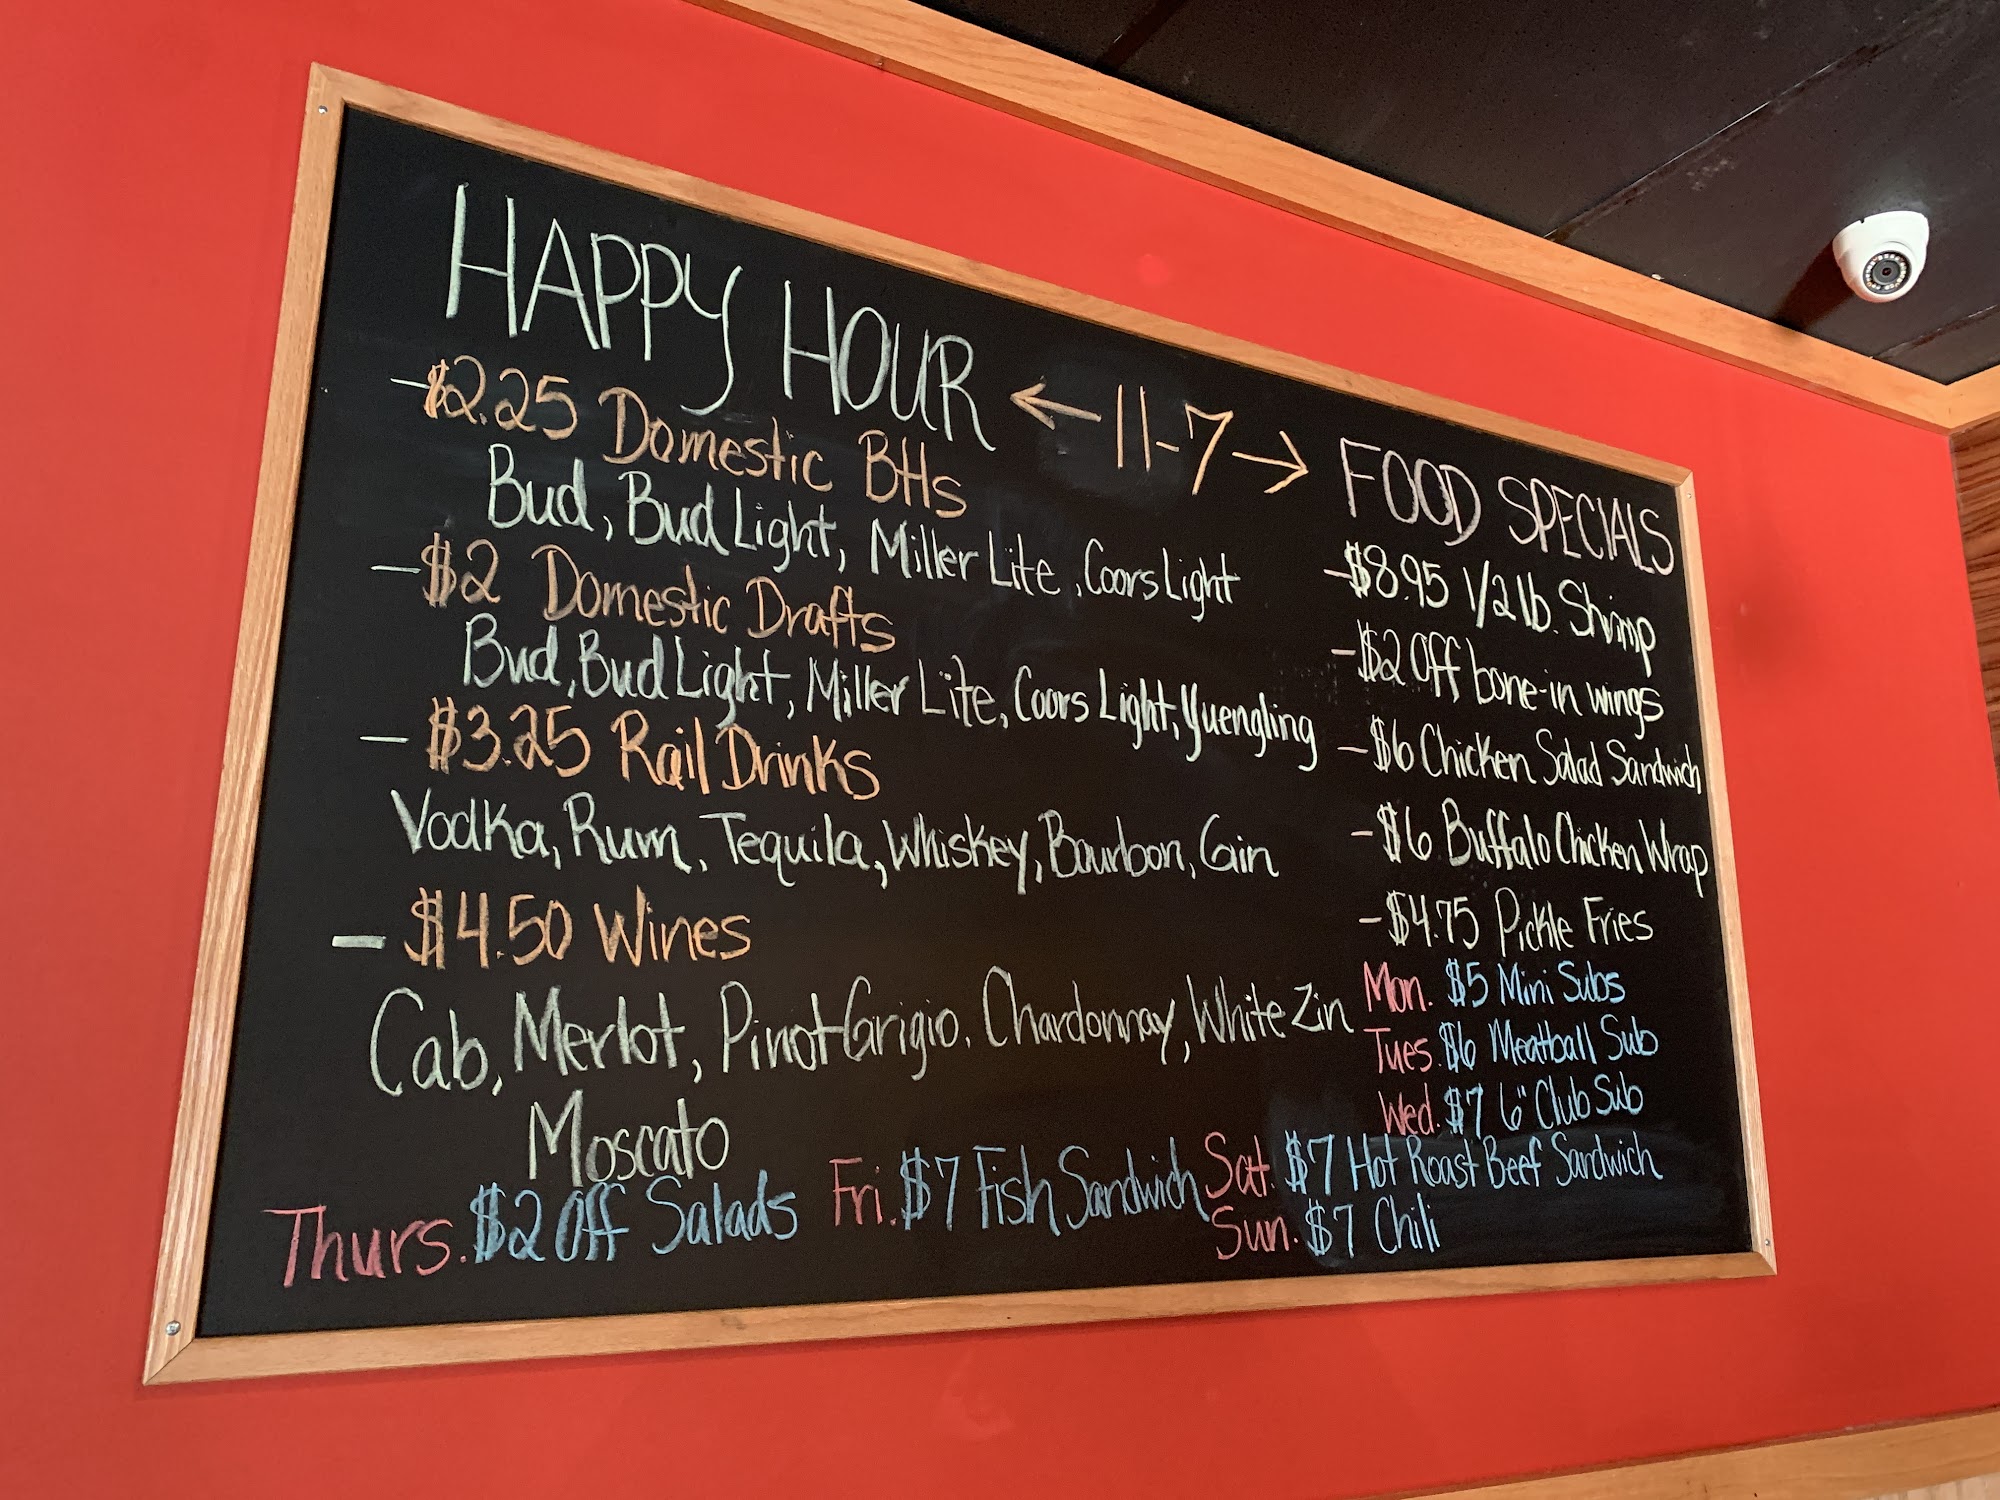 HAPPY HOUR ← 11-7 →
-$2.25 Domestic BHs
Bud, Bud Light, Miller Lite, Coors Light
-$2 Domestic Drafts
Bud, Bud Light, Miller Lite, Coors Light, Yuengling
-$3.25 Rail Drinks
Vodka, Rum, Tequila, Whiskey, Bourbon, Gin
-$4.50 Wines
Cab, Merlot, Pinot Grigio, Chardonnay, White Zin
Moscato
FOOD SPECIALS
-$8.95 1/2 lb. Shrimp
-$2 Off bone-in wings
-$6 Chicken Salad Sandwich
-$6 Buffalo Chicken Wrap
-$4.75 Pickle Fries
Mon. $5 Mini Subs
Tues. $6 Meatball Sub
Wed. $7 6" Club Sub
Thurs. $2 Off Salads
Fri. $7 Fish Sandwich
Sat. $7 Hot Roast Beef Sandwich
Sun. $7 Chili